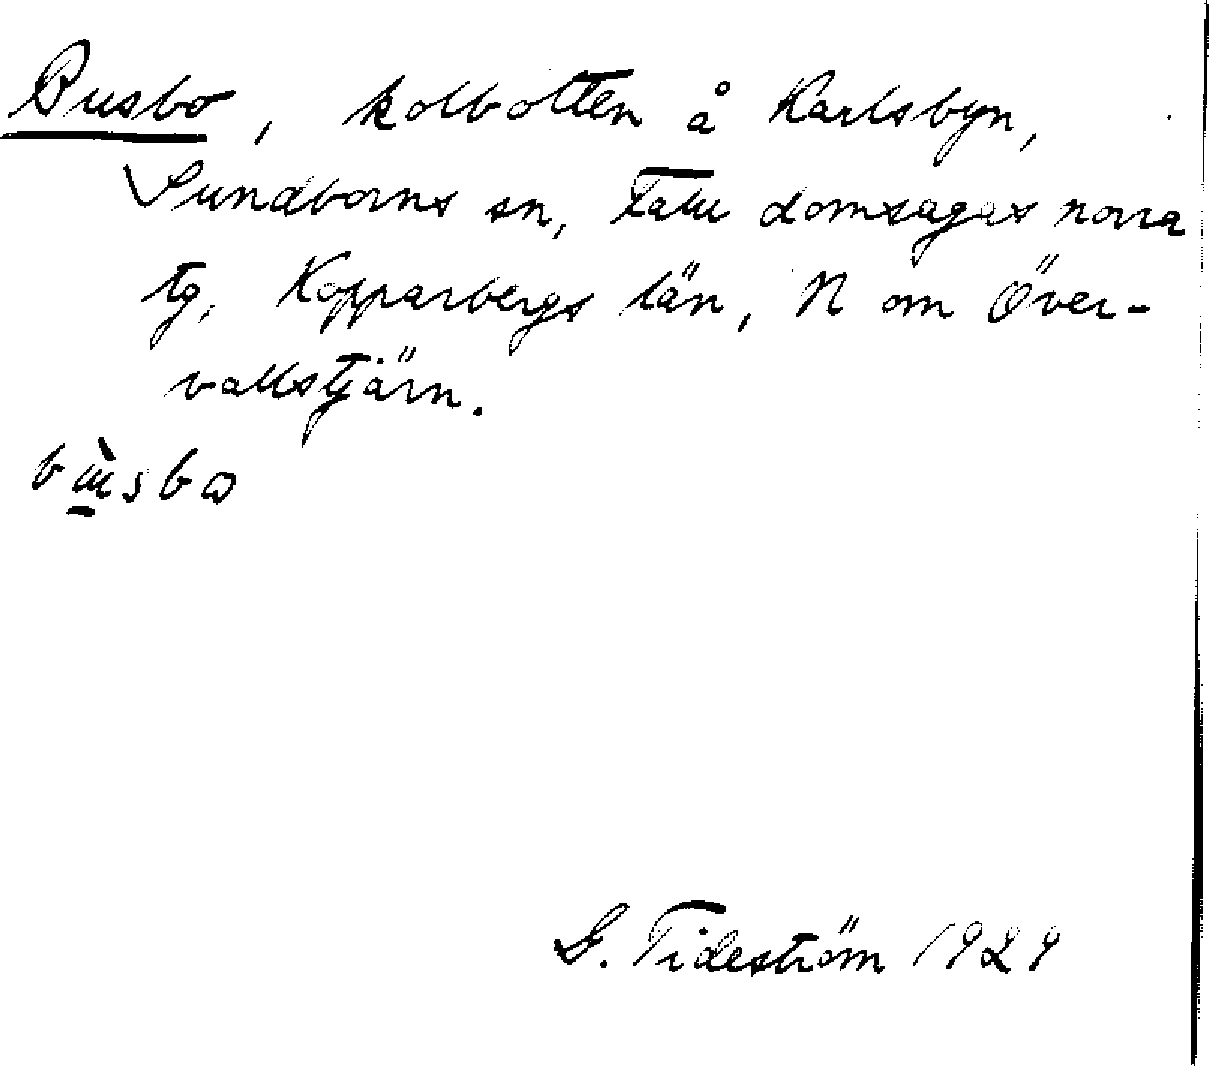 Busbo, kolbotten å Karlsbyn,
Sundborns sn, Falu domsagas norra
tg, Kopparbergs län, N om Över-
vallstjärn.
G. Tideström 1929